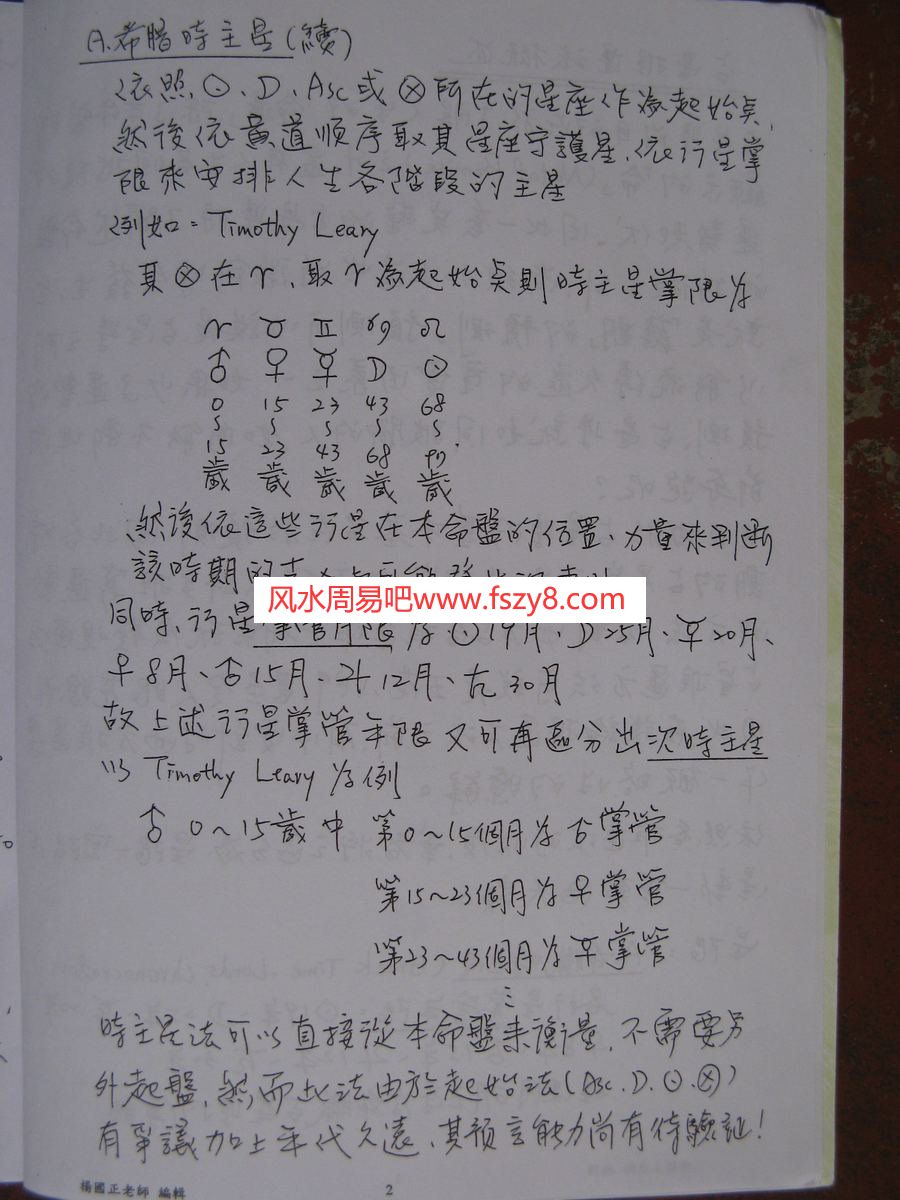 A.希臘時主星(續)
依照⊙、☽、Asc或⊗所在的星座作為起始点,
然後依黃道順序取其星座守護星、依行星掌
限來安排人生各階段的主星
例如:Timothy Leary
其⊗在♈,取♈為起始点則時主星掌限为
♈ ♉ ♊ ♋ ♌
♂ ♀ ☿ ☽ ⊙
0 15 23 43 68
~ ~ ~ ~ ~
15 23 43 68
歲 歲 歲 歲 歲
然後依這些行星在本命盤的位置、力量來判断
該時期的
风水周易吧www.fszy8.com
同時、行星掌管月限为⊙19月、☽25月、☿20月、
♀8月、♂15月、♃12月、♄30月
故上述行星掌管年限又可再區分出次時主星
以Timothy Leary为例
♂0~15歲中 第0~15個月为♂掌管
第15~23個月为♀掌管
第23~43個月为☿掌管
⋮
時主星法可以直接從本命盤來衡量,不需要另
外起盤、然而此法由於起始法(Asc.☽.⊙.⊗)
有爭議加上年代久遠、其预言能力尚有待驗証!
楊國正老師 編輯 2